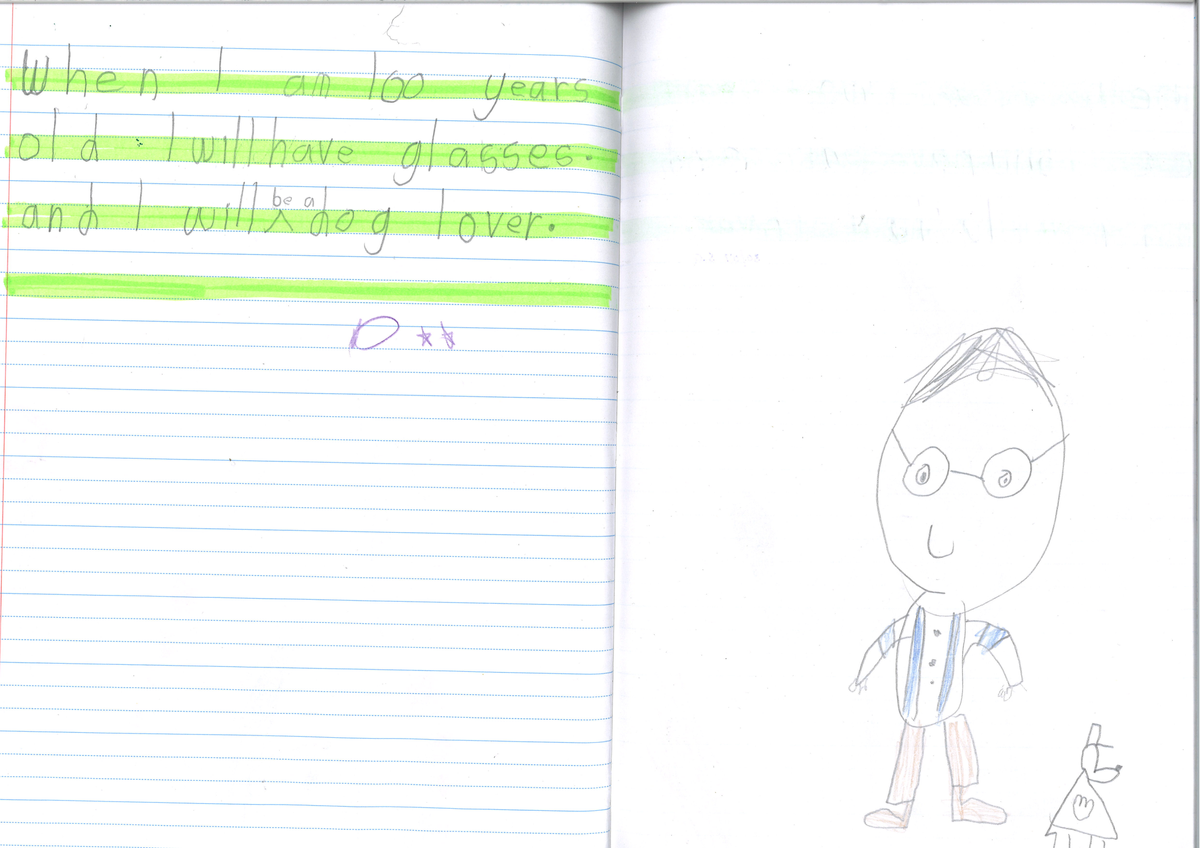 When I am 100 years
old. I will have glasses.
and I will be a dog lover.